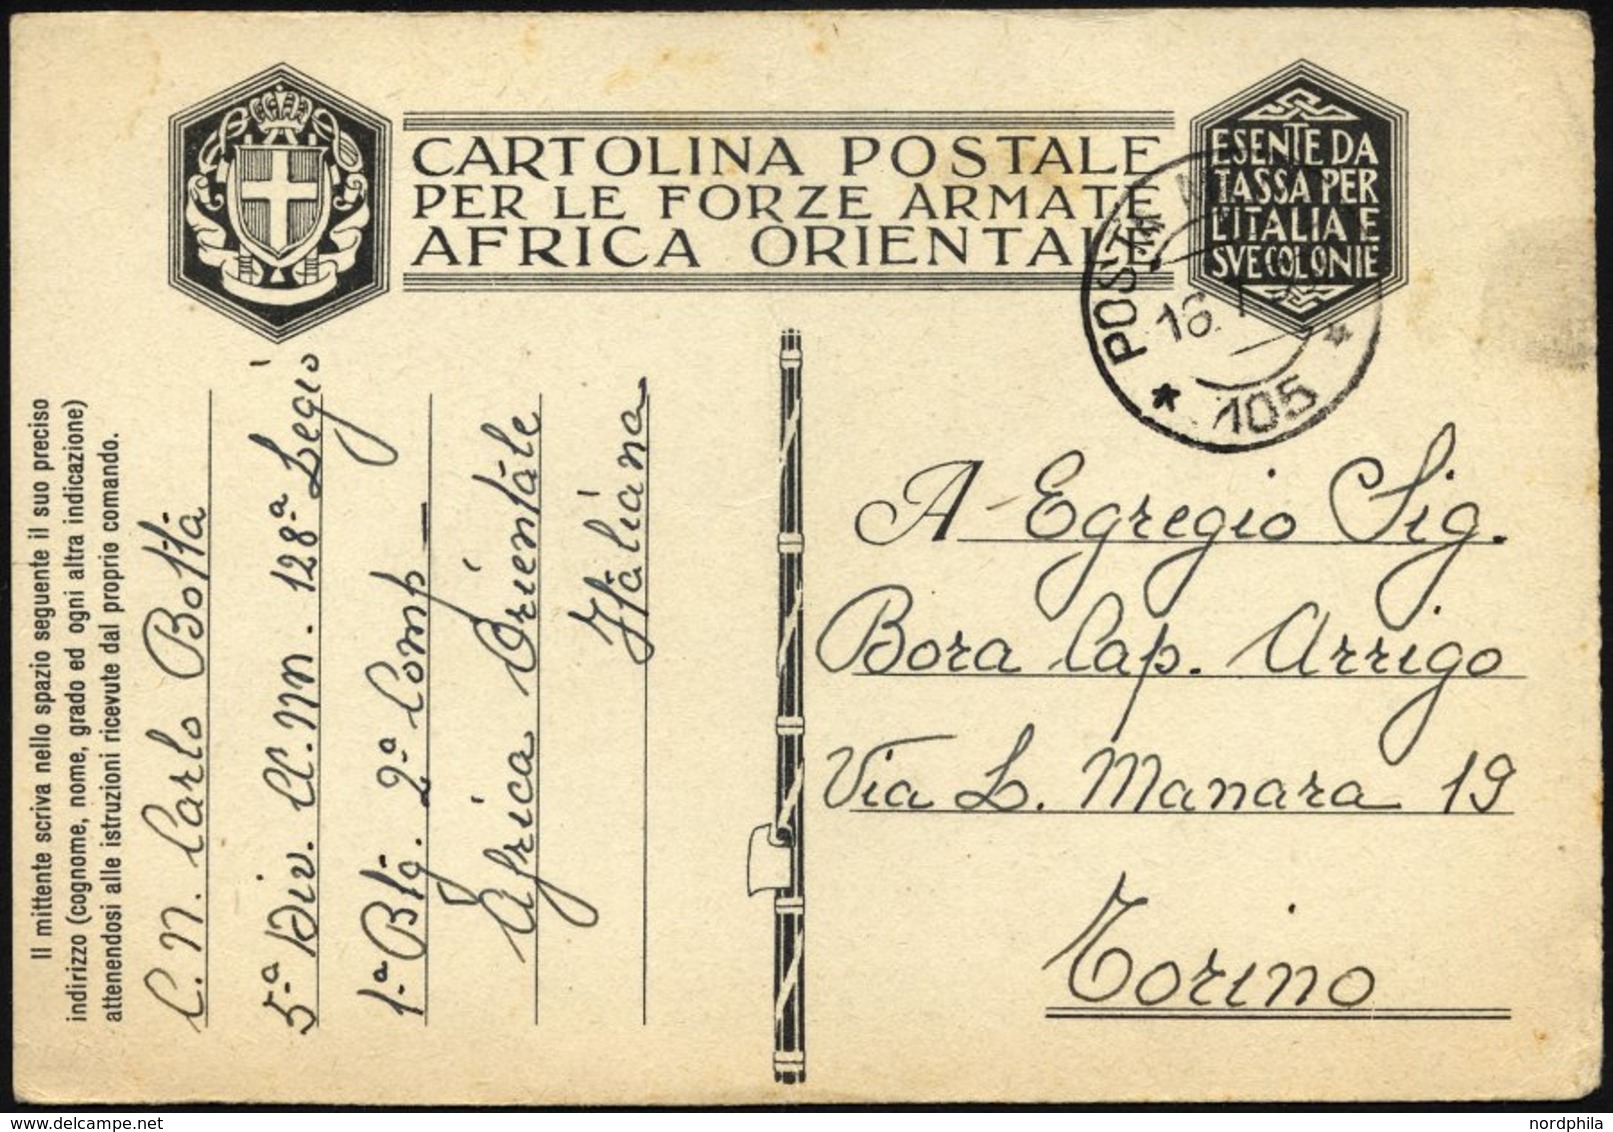 CARTOLINA POSTALE
PER LE FORZE ARMATE
AFRICA ORIENTALE
ESENTE DA
TASSA PER
L'ITALIA E
SVE COLONIE
POSTA
16.
* 105 *
Il mittente scriva nello spazio seguente il suo preciso
indirizzo (cognome, nome, grado ed ogni altra indicazione)
attenendosi alle istruzioni ricevute dal proprio comando.
C.N. Carlo Botta
5ª Div. CC.NN. 128ª Legió
1ª Btg. 2ª Comp -
Africa Orientale
Italiana
A Egregio Sig.
Bora Cap. Arrigo
Via L. Manara 19
Torino
www.delcampe.net
nordphila